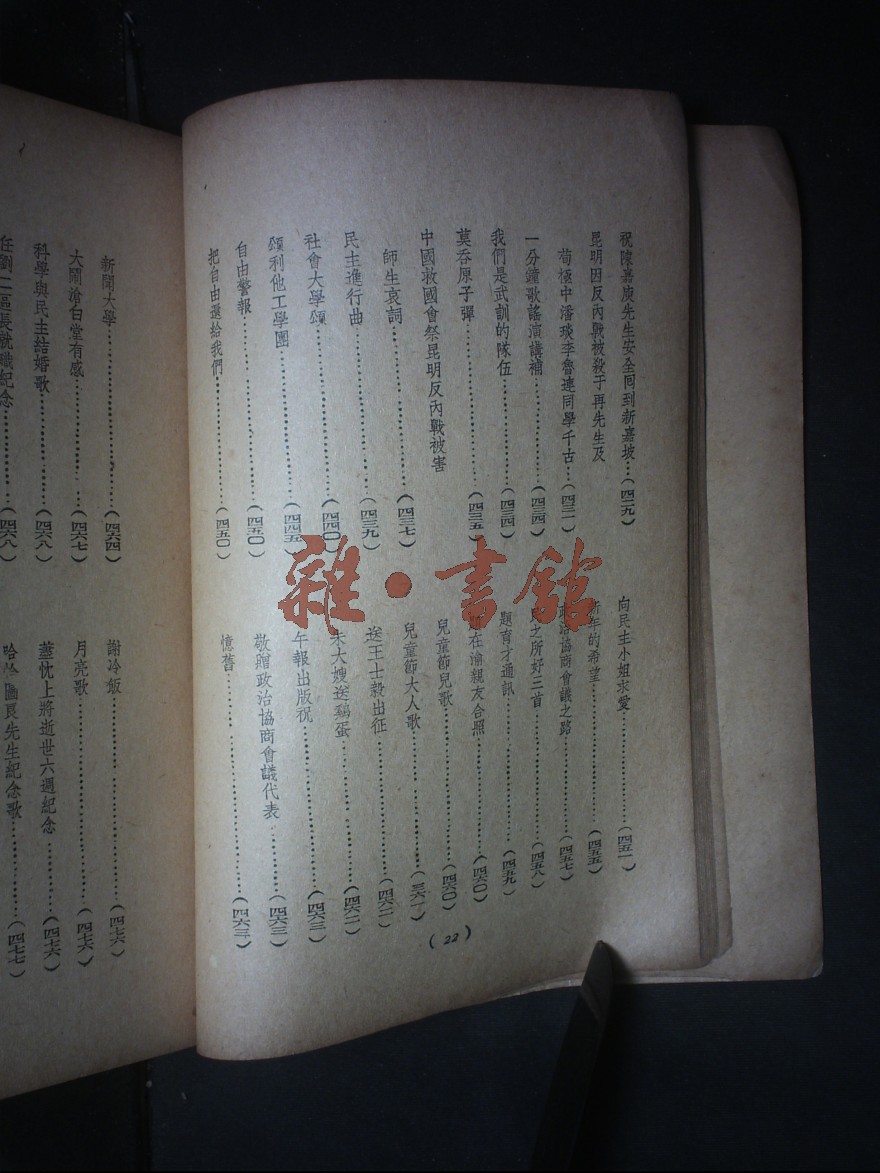 祝陳嘉庚先生安全囘到新嘉坡……(四二九)
昆明因反內戰被殺于再先生及
荀極中潘琰李魯連同學千古……(四三一)
一分鐘歌謠演講補……(四三四)
我們是武訓的隊伍……(四三四)
莫吞原子彈……(四三五)
中國救國會祭昆明反內戰被害
師生哀詞……(四三七)
民主進行曲……(四三九)
社會大學頌……(四四〇)
頌利他工學團……(四四五)
自由警報……(四五〇)
把自由還給我們……(四五〇)
向民主小姐求愛……(四五一)
新年的希望……(四五五)
政治協商會議之路……(四五七)
之所好三首……(四五八)
題育才通訊……(四五九)
在渝親友合照……(四六〇)
兒童節兒歌……(四六〇)
兒童節大人歌……(四六一)
送王士毅出征……(四六二)
朱大嫂送鷄蛋……(四六二)
午報出版祝……(四六三)
敬贈政治協商會議代表……(四六三)
憶舊……(四六三)
(22)
新開大學……(四六四)
大鬧滄白堂有感……(四六七)
科學與民主結婚歌……(四六八)
任劉二區長就職紀念……(四六八)
謝冷飯……(四七六)
月亮歌……(四七六)
藎忱上將逝世六週紀念……(四七六)
先生紀念歌……(四七七)
雜·書館